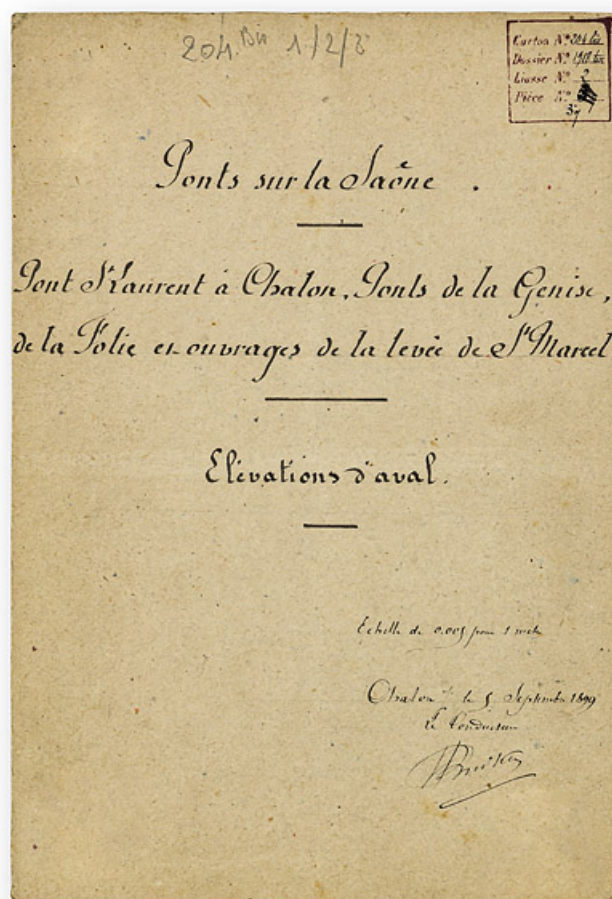 204 Bis 1/2/3
Carton Nº 204 bis
Dossier Nº
Liasse Nº 2
Pièce Nº
37
Ponts sur la Saône.
Pont St Laurent à Chalon, Ponts de la Genise,
de la Folie et ouvrages de la levée de St Marcel
Elévations d'aval.
Echelle de 0.005 pour 1 mètre
Chalon le 5 Septembre 1899
Le Conducteur